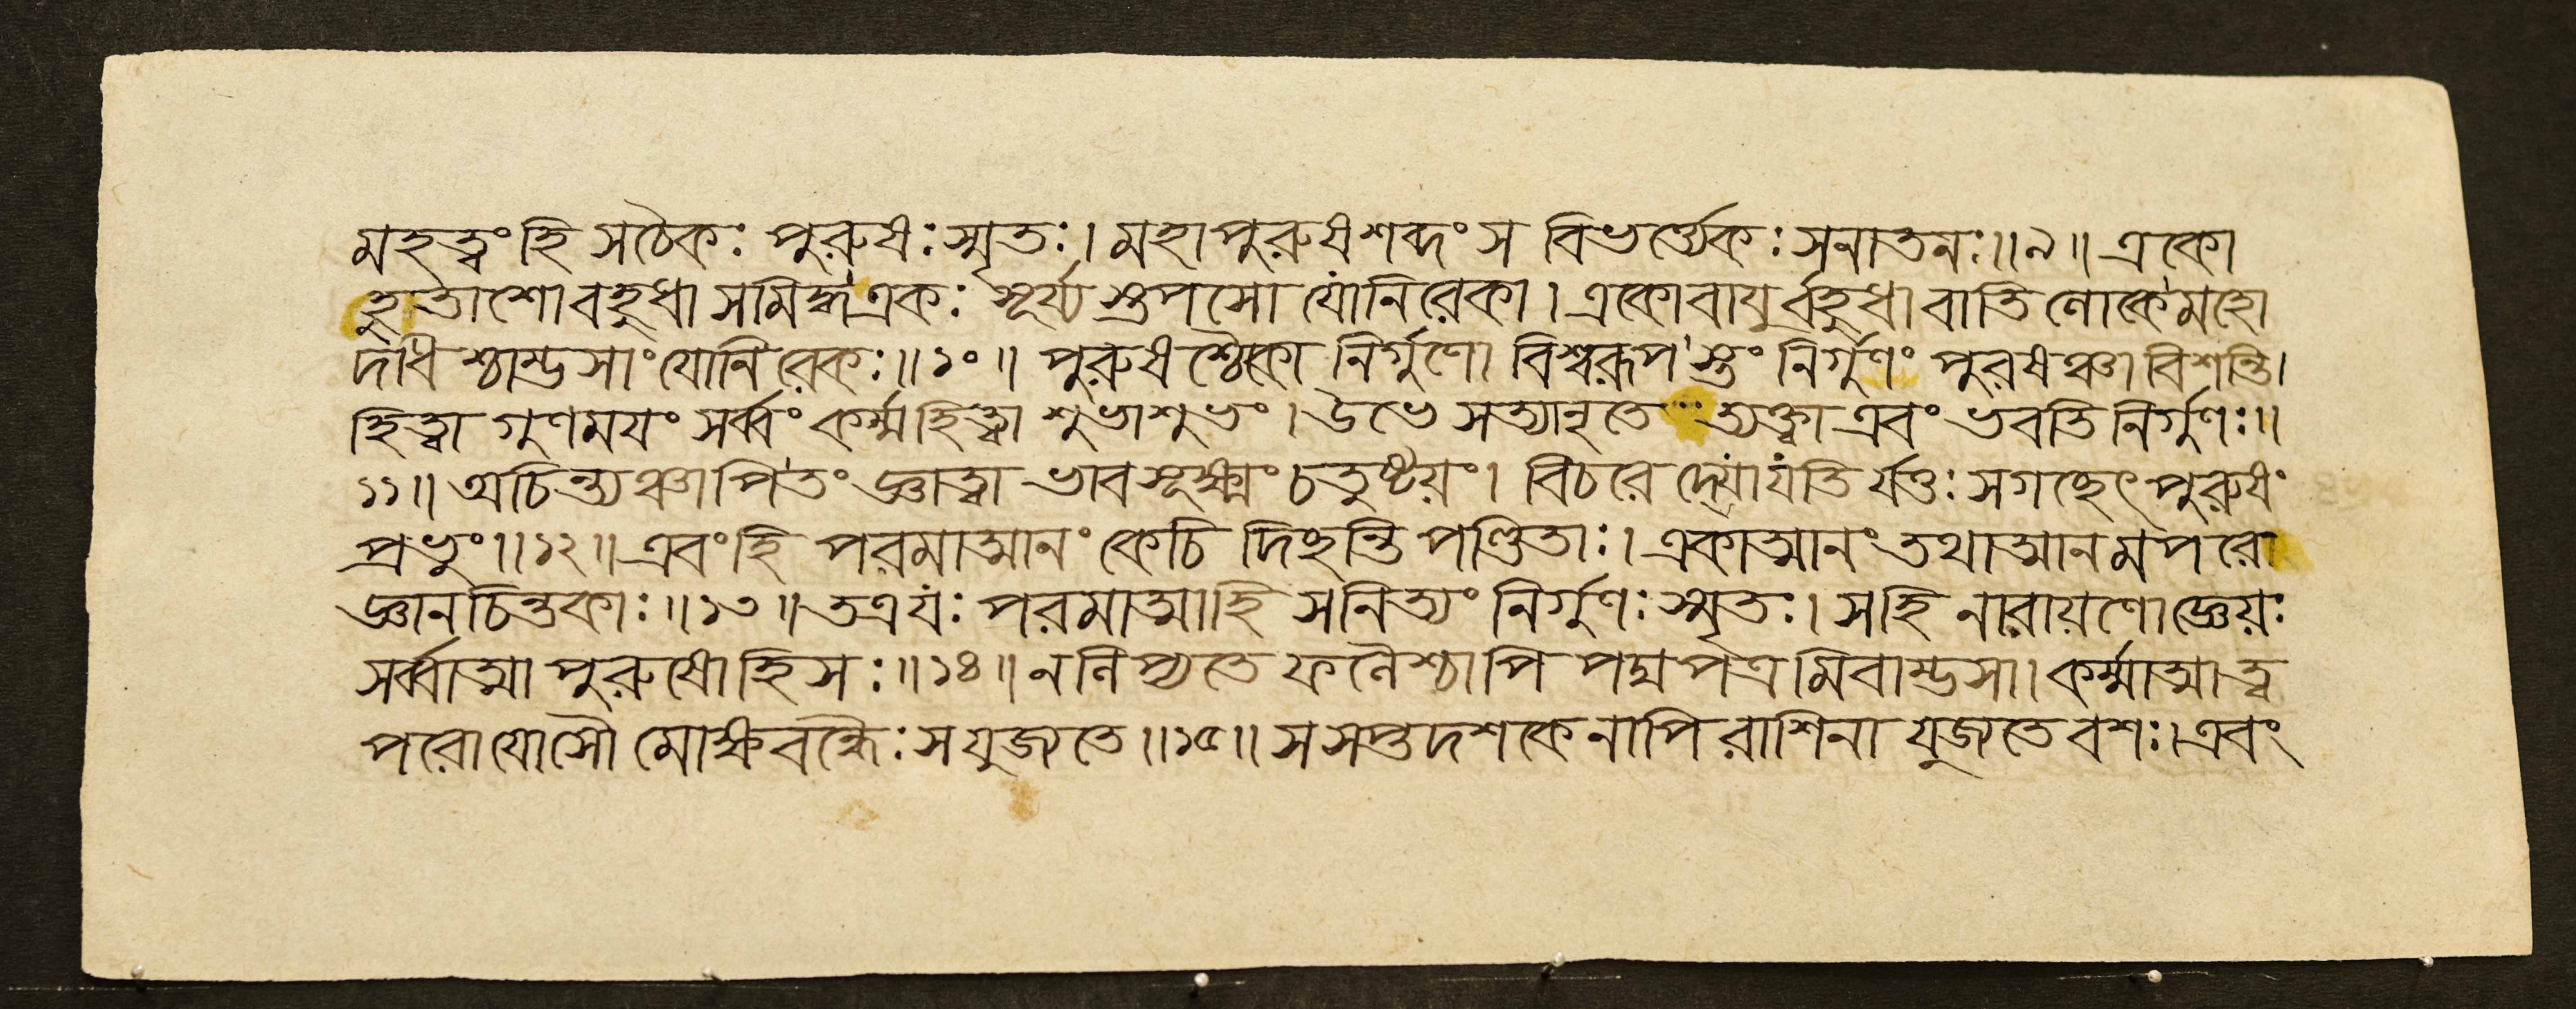 মহত্বং হি সচৈকঃ পুরুষঃ স্মৃতঃ। মহাপুরুষশব্দং স বিভর্ত্ত্যেকঃ সনাতনঃ॥৯॥ একো
হুতাশো বহুধা সমিদ্ধ্য এক: সূর্য্যস্তপসো যোনিরেকা। একো বায়ুর্ব্বহুধা বাতি লোকে মহো
দধিশ্চাম্ভসাং যোনিরেকঃ॥১০॥ পুরুষশ্চৈকো নির্গুণো বিশ্বরূপস্তং নির্গুণং পুরষঞ্চাবিশন্তি।
হিত্বা গুণময়ং সর্ব্বং কর্ম্মহিত্বা শুভাশুভং। উভে সত্যানৃতে ত্যক্ত্বা এবং ভবতি নির্গুণঃ॥
১১॥ অচিন্ত্যঞ্চাপি তং জ্ঞাত্বা ভাবসূক্ষ্মং চতুষ্টয়ং। বিচরেদ্যো যতির্যত্তঃ সগচ্ছেৎ পুরুষং
প্রভুং॥১২॥ এবং হি পরমাত্মানং কেচিদিচ্ছন্তি পণ্ডিতাঃ। একাত্মানং তথাত্মানমপরে
জ্ঞানচিন্তকাঃ॥১৩॥ তত্র যঃ পরমাত্মা হি স নিত্যং নির্গুণঃ স্মৃতঃ। সহি নারায়ণো জ্ঞেয়ঃ
সর্ব্বাত্মা পুরুষো হি সঃ॥১৪॥ ন লিপ্যতে ফলৈশ্চাপি পদ্মপত্রমিবাম্ভসা। কর্ম্মাত্মা ত্ব
পরো যোসৌ মোক্ষবন্ধৈঃ স যুজ্যতে॥১৫॥ স সপ্তদশকেনাপি রাশিনা যুজ্যতে বশঃ। এবং